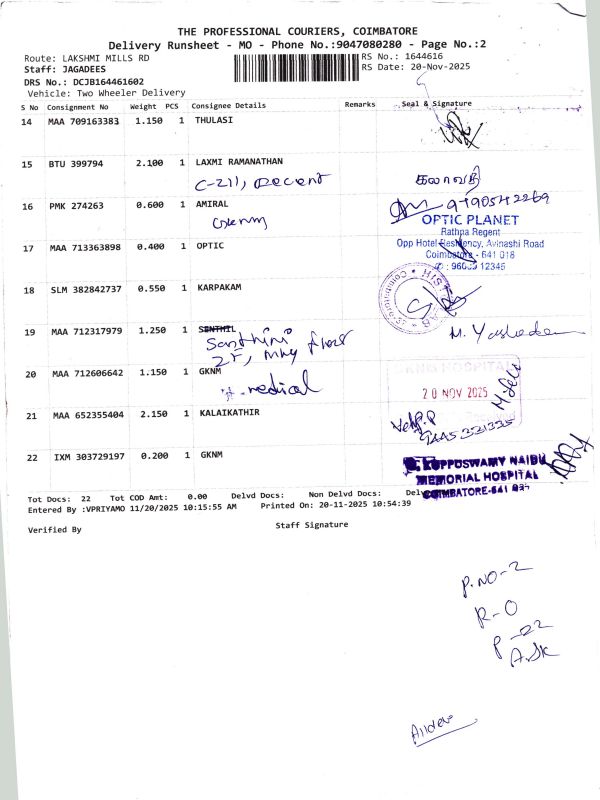 THE PROFESSIONAL COURIERS, COIMBATORE
Delivery Runsheet - MO - Phone No.:9047080280 - Page No.:2
Route: LAKSHMI MILLS RD
RS No.: 1644616
Staff: JAGADEES
RS Date: 20-Nov-2025
DRS No.: DCJB164461602
Vehicle: Two Wheeler Delivery
S No Consignment No Weight PCS Consignee Details Remarks Seal & Signature
14 MAA 709163383 1.150 1 THULASI
15 BTU 399794 2.100 1 LAXMI RAMANATHAN
C-211, Decent கலாவதி
16 PMK 274263 0.600 1 AMIRAL
9790542269
OPTIC PLANET
Rathpa Regent
17 MAA 713363898 0.400 1 OPTIC
Opp Hotel Residency, Avinashi Road
Coimbatore - 641 018
: 96003 12345
18 SLM 382842737 0.550 1 KARPAKAM
19 MAA 712317979 1.250 1 SENTHIL
Santhini
M. Yashodha
20 MAA 712606642 1.150 1 GKNM
GKNM HOSPITAL
medical
20 NOV 2025
21 MAA 652355404 2.150 1 KALAIKATHIR
22 IXM 303729197 0.200 1 GKNM
G. KUPPUSWAMY NAIDU
MEMORIAL HOSPITAL
COIMBATORE-641 037
Tot Docs: 22 Tot COD Amt: 0.00 Delvd Docs: Non Delvd Docs:
Entered By :VPRIYAMO 11/20/2025 10:15:55 AM Printed On: 20-11-2025 10:54:39
Verified By Staff Signature
P.NO-2
R-0
P-22
A.SK